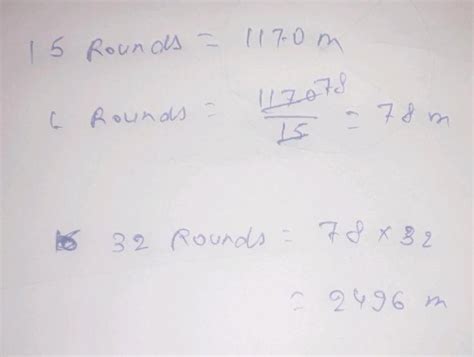 15 Rounds = 1170 m
6 Rounds = 1170 78 / 15 = 78 m
32 Rounds = 78 × 32
= 2496 m